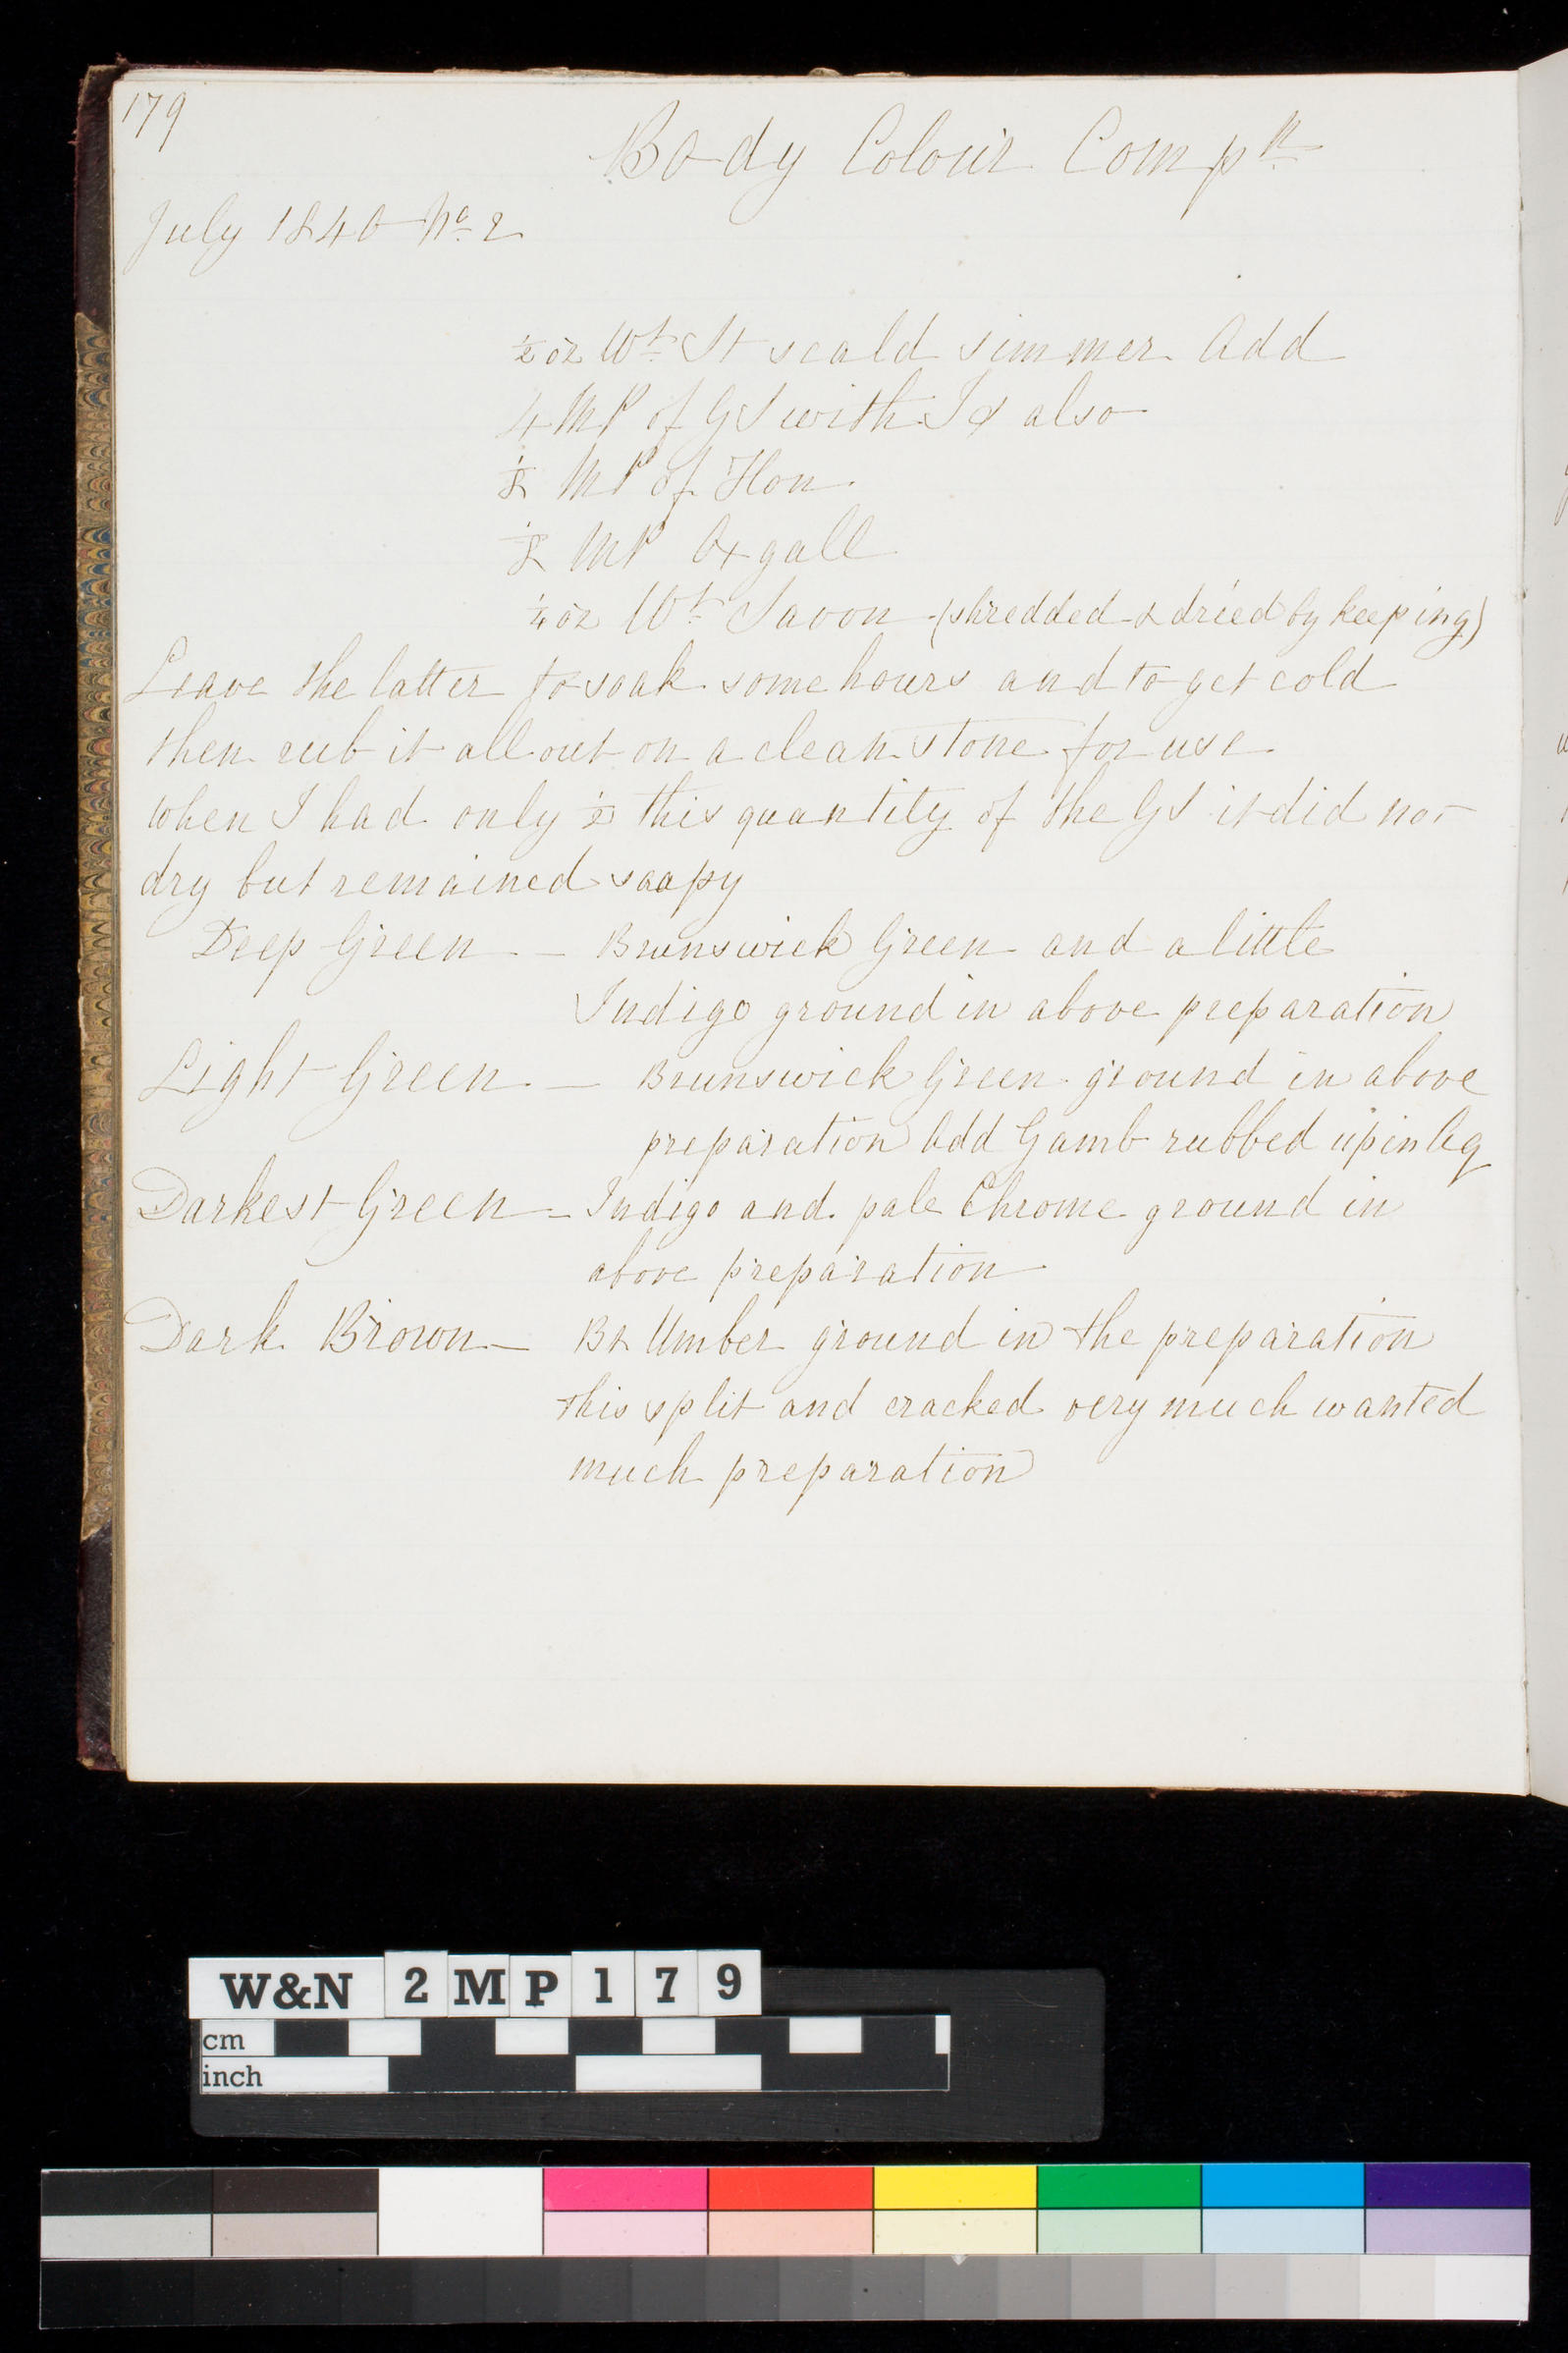 179
Body Colour Comp n
July 1840 No 2
½ oz Wt St scald simmer Add
4 MP of GS with I & also
⅛ MP of Hon
⅛ MP Oxgall
¼ oz Wt Savon (shredded & dried by keeping)
Leave the latter to soak some hours and to get cold
then rub it all out on a clean stone for use
when I had only ½ this quantity of the GS it did not
dry but remained soapy
Deep Green — Brunswick Green and a little
Indigo ground in above preparation
Light Green — Brunswick Green ground in above
preparation Add Gamb rubbed up in Aq
Darkest Green — Indigo and pale Chrome ground in
above preparation
Dark Brown — Bt Umber ground in the preparation
this split and cracked very much wanted
much preparation
W&N 2MP179
cm
inch